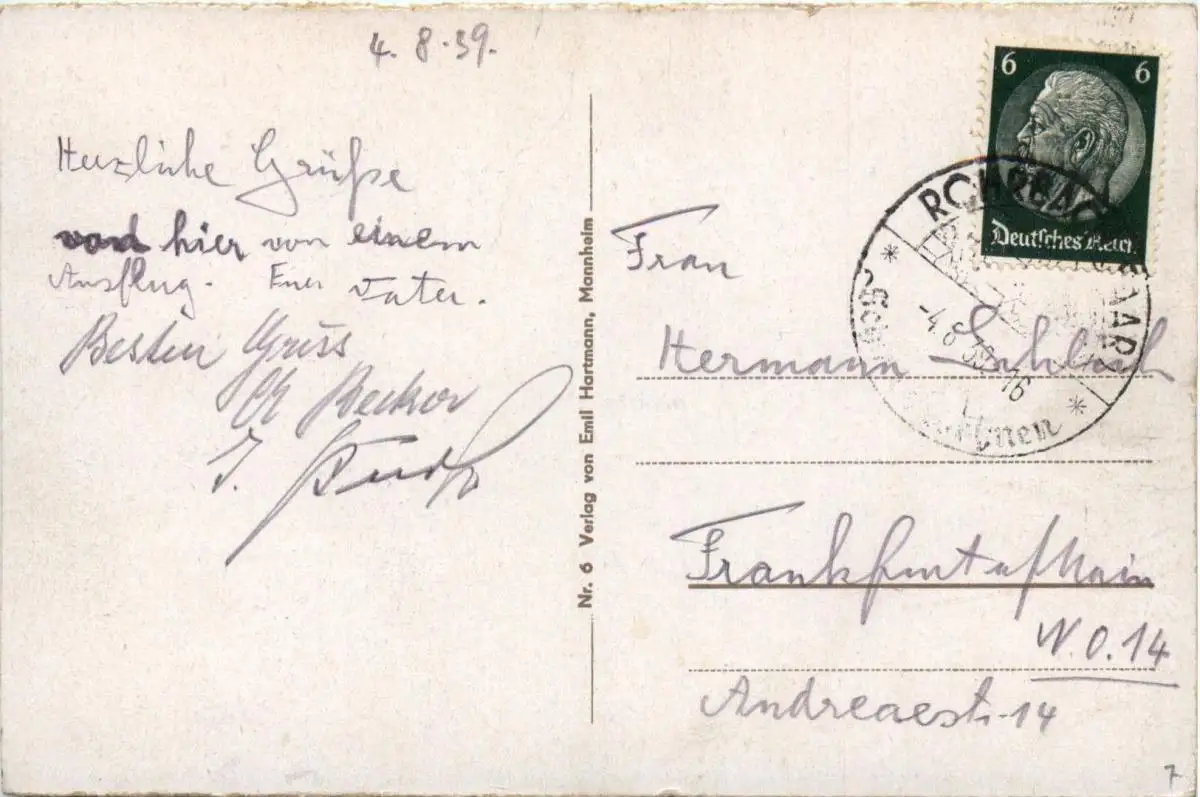 4. 8. 39.
Herzliche Grüße
hier von einem
Ausflug. Euer Vater.
Besten Gruss
Becker
J.
Nr. 6 Verlag von Emil Hartmann, Mannheim
6 6
Deutsches Reich
ROHRBACH
SAAR
-4.8.39-16
Frau
Hermann
Frankfurt a/Main
N.O.14
Andreaestr. 14
7